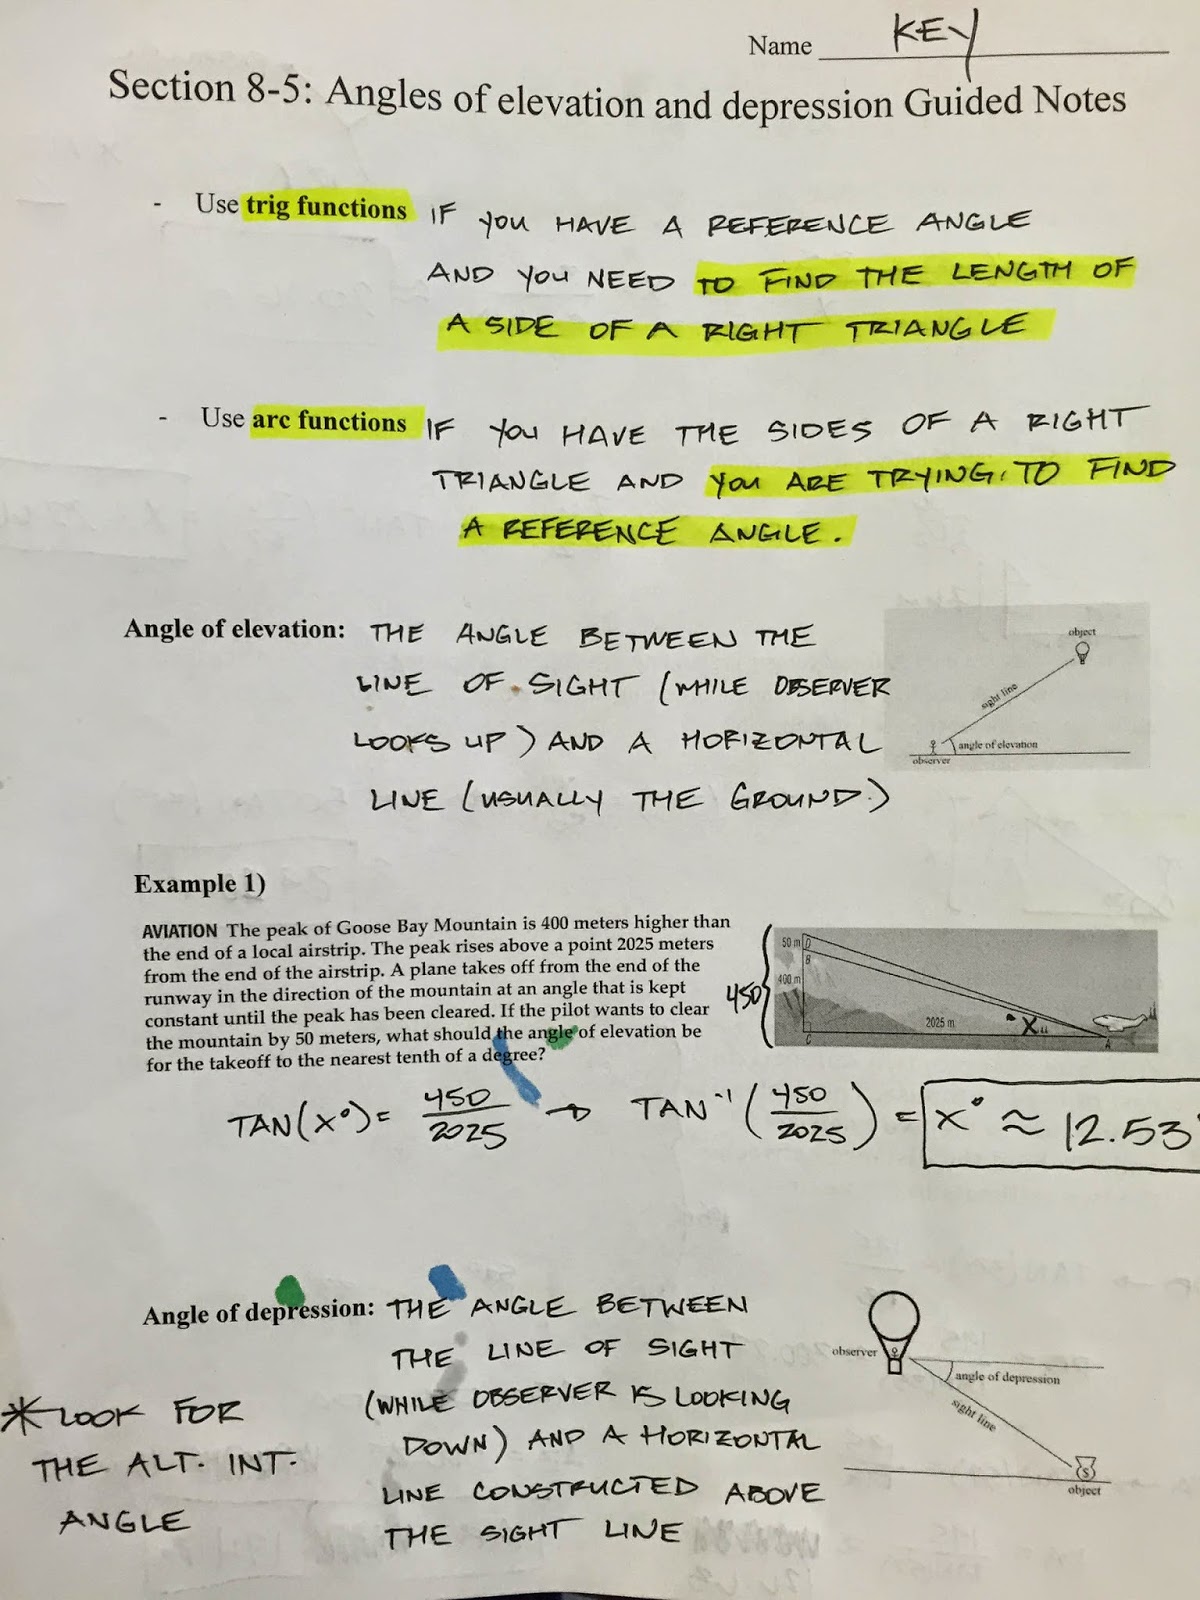 Name KEY
Section 8-5: Angles of elevation and depression Guided Notes
- Use trig functions IF YOU HAVE A REFERENCE ANGLE
AND YOU NEED TO FIND THE LENGTH OF
A SIDE OF A RIGHT TRIANGLE
- Use arc functions IF YOU HAVE THE SIDES OF A RIGHT
TRIANGLE AND YOU ARE TRYING TO FIND
A REFERENCE ANGLE.
Angle of elevation: THE ANGLE BETWEEN THE
LINE OF SIGHT (WHILE OBSERVER
LOOKS UP) AND A HORIZONTAL
LINE (USUALLY THE GROUND.)
object
sight line
angle of elevation
observer
Example 1)
AVIATION The peak of Goose Bay Mountain is 400 meters higher than
the end of a local airstrip. The peak rises above a point 2025 meters
from the end of the airstrip. A plane takes off from the end of the
runway in the direction of the mountain at an angle that is kept
constant until the peak has been cleared. If the pilot wants to clear
the mountain by 50 meters, what should the angle of elevation be
for the takeoff to the nearest tenth of a degree?
450
50 m D
B
400 m
2025 m
X
C
A
TAN(X°) = 450/2025 → TAN⁻¹(450/2025) = X° ≈ 12.53°
Angle of depression: THE ANGLE BETWEEN
THE LINE OF SIGHT
(WHILE OBSERVER IS LOOKING
DOWN) AND A HORIZONTAL
LINE CONSTRUCTED ABOVE
THE SIGHT LINE
* LOOK FOR
THE ALT. INT.
ANGLE
observer
angle of depression
sight line
$
object